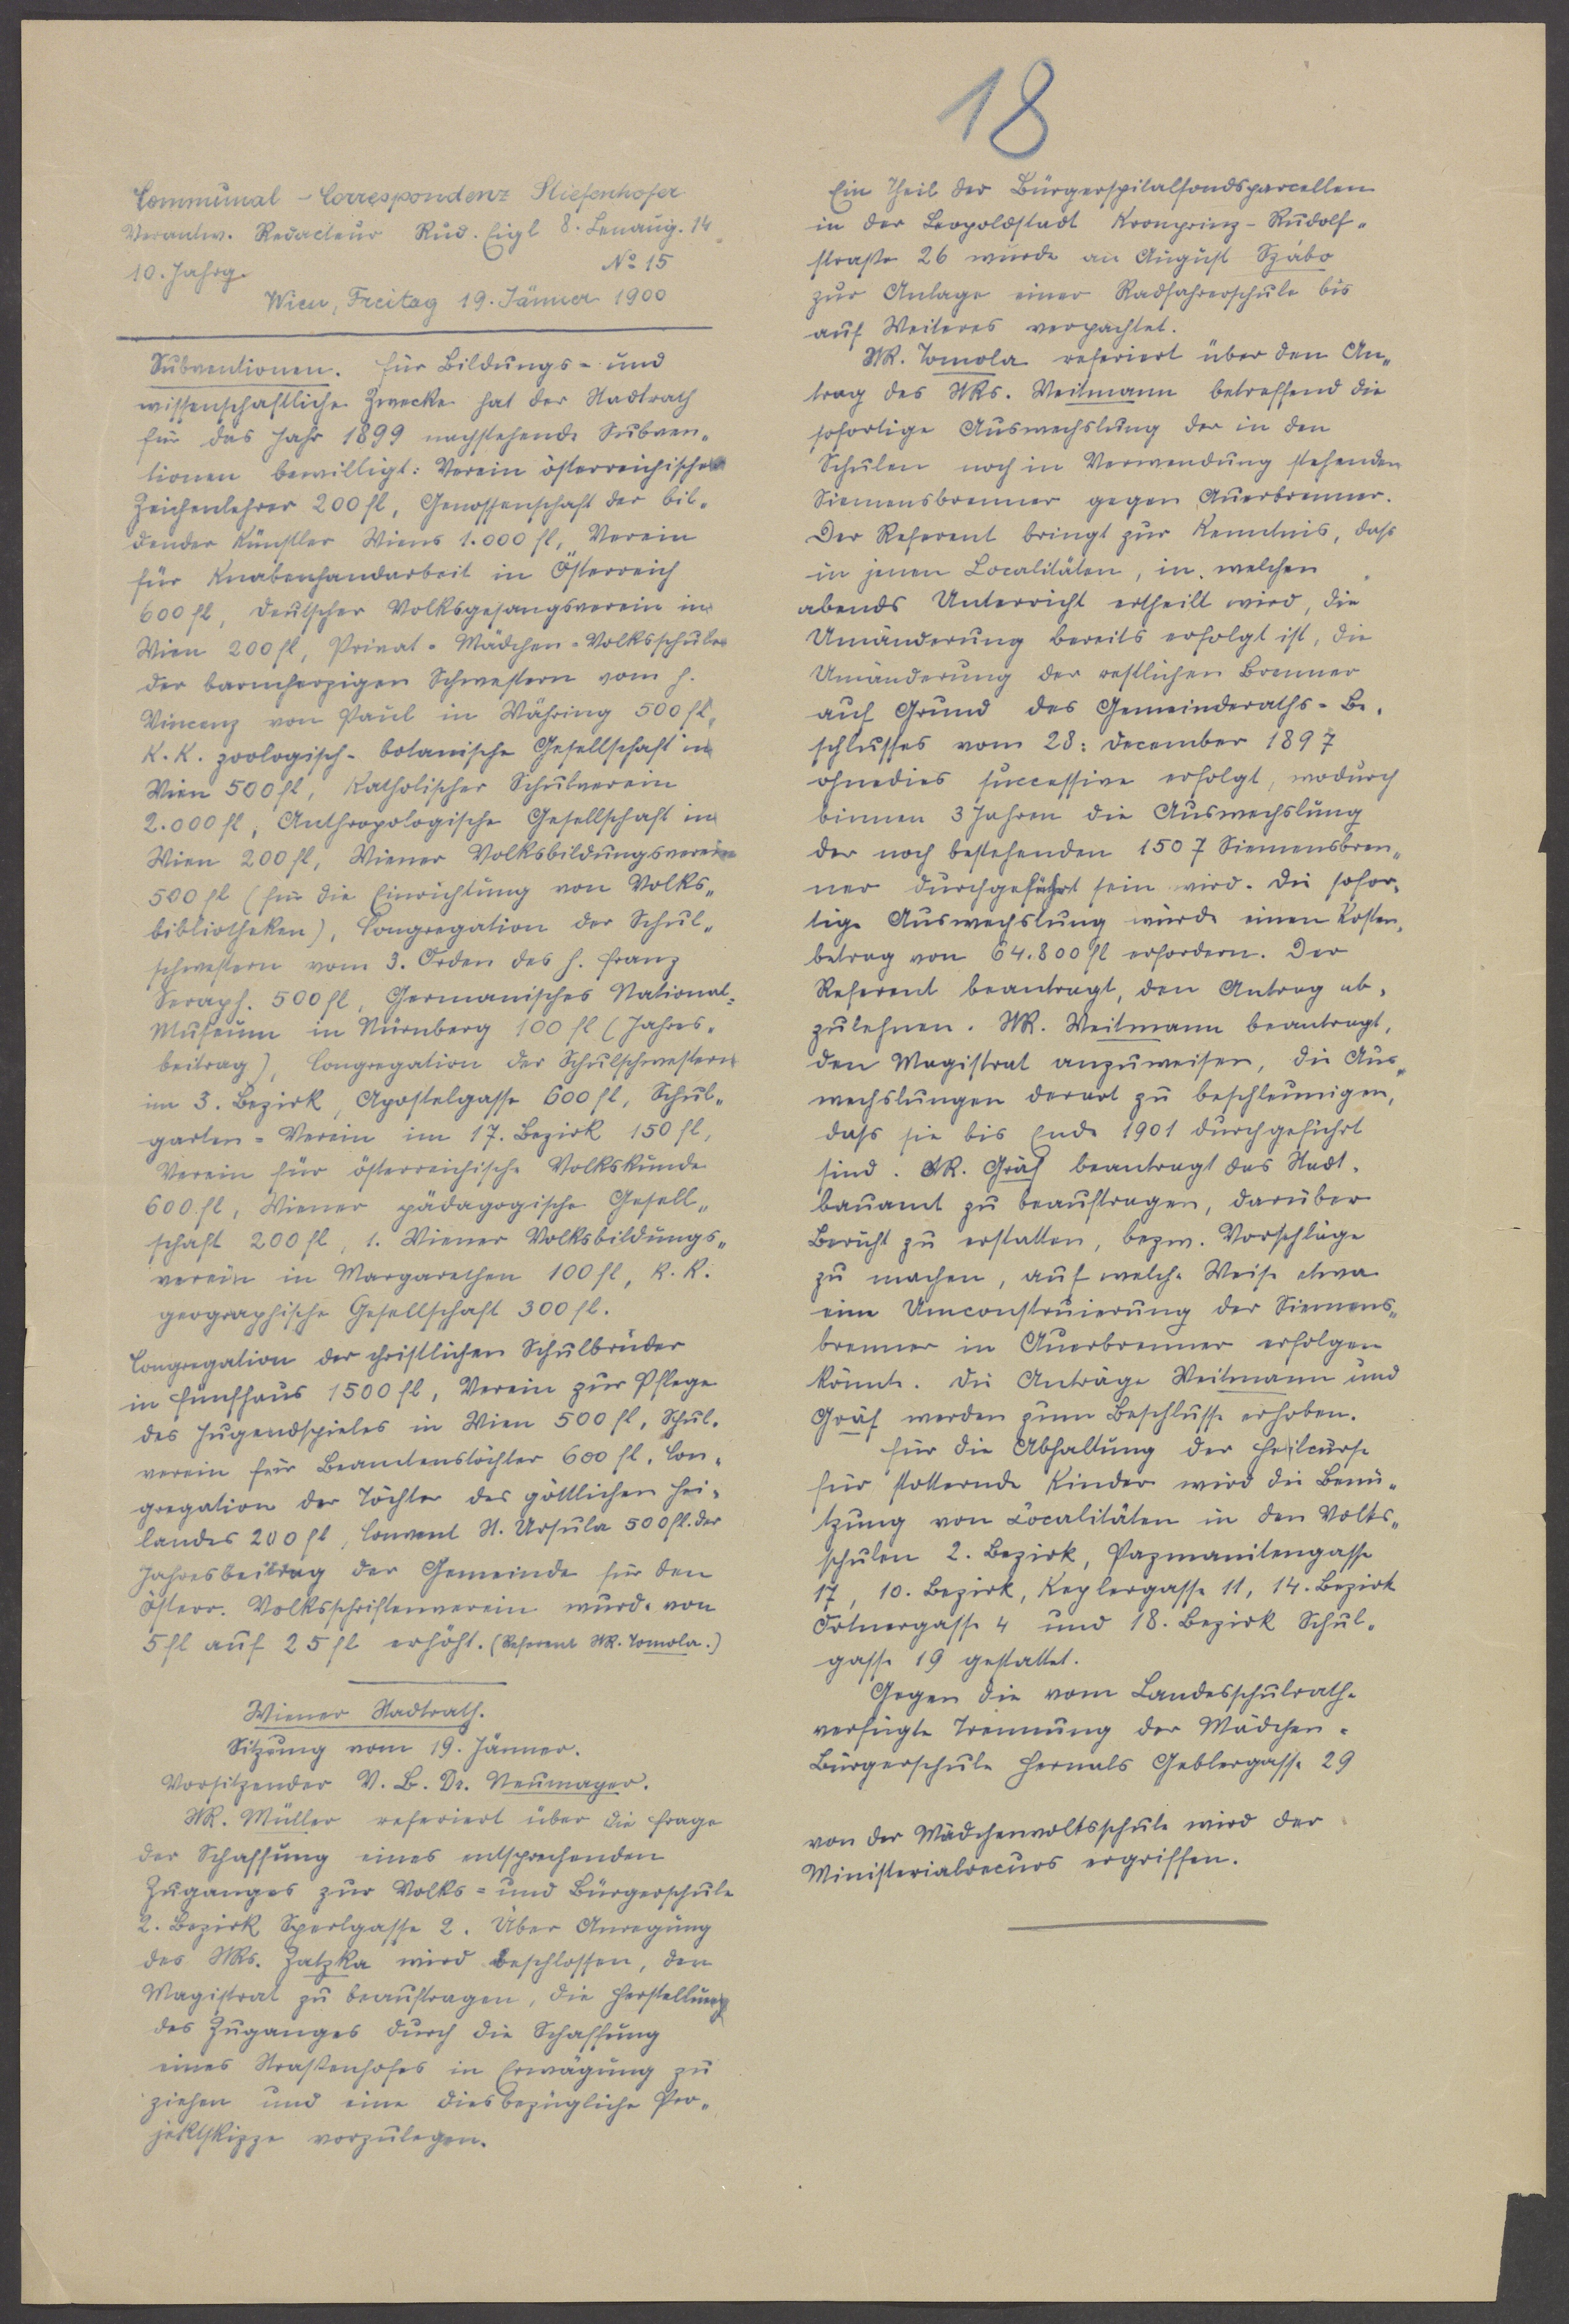 18
Communal-Correspondenz Stiefenhofer
Verantw. Redacteur Rud. Eigl 8. Lenaug. 14
10. Jahrg. No 15
Wien, Freitag 19. Jänner 1900
Subventionen. Für Bildungs- und
wissenschaftliche Zwecke hat der Stadtrath
für das Jahr 1899 nachstehende Subven-
tionen bewilligt: Verein österreichischer
Zeichenlehrer 200 fl, Genossenschaft der bil-
dender Künstler Wiens 1.000 fl, Verein
für Knabenhandarbeit in Österreich
600 fl, Deutscher Volksgesangsverein in
Wien 200 fl, Privat-Mädchen-Volksschule
der barmherzigen Schwestern vom h.
Vincenz von Paul in Währing 500 fl,
K. K. zoologisch-botanische Gesellschaft in
Wien 500 fl, Katholischer Schulverein
2.000 fl, Anthropologische Gesellschaft in
Wien 200 fl, Wiener Volksbildungsverein
500 fl (für die Einrichtung von Volks-
bibliotheken), Congregation der Schul-
schwestern vom 3. Orden des h. Franz
Seraph. 500 fl, Germanisches National-
Museum in Nürnberg 100 fl (Jahres-
beitrag), Congregation der Schulschwestern
im 3. Bezirk, Apostelgasse 600 fl, Schul-
garten-Verein im 17. Bezirk 150 fl,
Verein für österreichische Volkskunde
600 fl, Wiener pädagogische Gesell-
schaft 200 fl, 1. Wiener Volksbildungs-
verein in Margarethen 100 fl, K. K.
geographische Gesellschaft 300 fl.
Congregation der christlichen Schulbrüder
in Fünfhaus 1500 fl, Verein zur Pflege
des Jugendspieles in Wien 500 fl, Schul-
verein für Beamtenstöchter 600 fl, Con-
gregation der Töchter des göttlichen Hei-
landes 200 fl, Convent St. Ursula 500 fl. Der
Jahresbeitrag der Gemeinde für den
österr. Volksschriftenverein wurde von
5 fl auf 25 fl erhöht. (Referent StR. Tomola.)
Wiener Stadtrath.
Sitzung vom 19. Jänner.
Vorsitzender V. B. Dr. Neumayer.
StR. Müller referiert über die Frage
der Schaffung eines entsprechenden
Zuganges zur Volks- und Bürgerschule
2. Bezirk Sperlgasse 2. Über Anregung
des StRs. Zatzka wird beschlossen, den
Magistrat zu beauftragen, die Herstellung
des Zuganges durch die Schaffung
eines Straßenhofes in Erwägung zu
ziehen und eine diesbezügliche Pro-
jektskizze vorzulegen.
Ein Theil der Bürgerspitalfondsparcellen
in der Leopoldstadt Kronprinz-Rudolf-
straße 26 wurde an August Szabo
zur Anlage einer Radfahrerschule bis
auf Weiteres verpachtet.
StR. Tomola referiert über den An-
trag des StRs. Weitmann betreffend die
sofortige Auswechslung der in den
Schulen noch in Verwendung stehenden
Siemensbrenner gegen Auerbrenner.
Der Referent bringt zur Kenntnis, dass
in jenen Localitäten, in welchen
abends Unterricht ertheilt wird, die
Umänderung bereits erfolgt ist, die
Umänderung der restlichen Brenner
auf Grund des Gemeinderaths-Be-
schlusses vom 28. December 1897
ohnedies successive erfolgt, wodurch
binnen 3 Jahren die Auswechslung
der noch bestehenden 1507 Siemensbren-
ner durchgeführt sein wird. Die sofor-
tige Auswechslung würde einen Kosten-
betrag von 64.800 fl erfordern. Der
Referent beantragt, den Antrag ab-
zulehnen. StR. Weitmann beantragt,
den Magistrat anzuweisen, die Aus-
wechslungen derart zu beschleunigen,
dass sie bis Ende 1901 durchgeführt
sind. StR. Gräf beantragt das Stadt-
bauamt zu beauftragen, darüber
Bericht zu erstatten, bezw. Vorschläge
zu machen, auf welche Weise etwa
eine Umconstruierung der Siemens-
brenner in Auerbrenner erfolgen
könnte. Die Anträge Weitmann und
Gräf werden zum Beschlusse erhoben.
Für die Abhaltung der Heilcurse
für stotternde Kinder wird die Benü-
tzung von Localitäten in den Volks-
schulen 2. Bezirk, Pazmanitengasse
17, 10. Bezirk, Keplergasse 11, 14. Bezirk
Ortnergasse 4 und 18. Bezirk Schul-
gasse 19 gestattet.
Gegen die vom Landesschulrathe
verfügte Trennung der Mädchen-
Bürgerschule Hernals Geblergasse 29
von der Mädchenvolksschule wird der
Ministerialrecurs ergriffen.